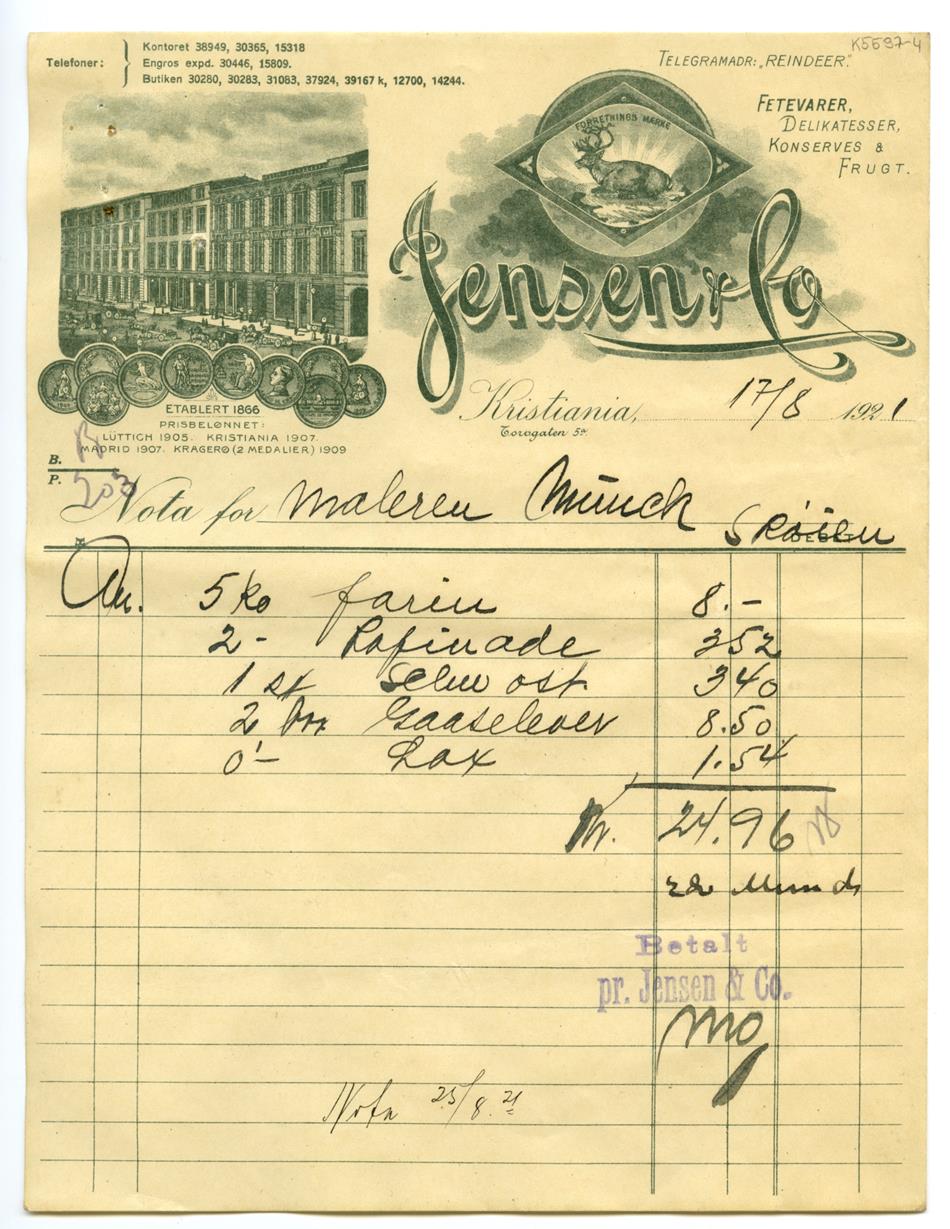 K5597-4
Telefoner:
Kontoret 38949, 30365, 15318
Engros expd. 30446, 15809.
Butiken 30280, 30283, 31083, 37924, 39167 k, 12700, 14244.
TELEGRAMADR: „REINDEER".
FORRETNINGS MÆRKE
FETEVARER,
DELIKATESSER,
KONSERVES &
FRUGT.
Jensen & Co
ETABLERT 1866
PRISBELØNNET:
LÜTTICH 1905. KRISTIANIA 1907.
MADRID 1907. KRAGERØ (2 MEDALIER) 1909
Kristiania, 17/8 1921
Torvgaten 5
B.
P. 203
Nota for maleren Münck
Skøien
5 ko farin 8.-
2 - Rafinade 352
1 st ost 340
2 Gaaselever 8.50
Lax 1.54
Kr. 24.96
Betalt
pr. Jensen & Co.
Nota 25/8.21